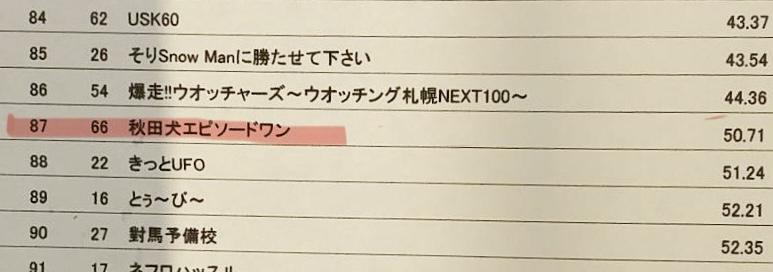 84 62 USK60 43.37
85 26 そりSnow Manに勝たせて下さい 43.54
86 54 爆走!!ウオッチャーズ～ウオッチング札幌NEXT100～ 44.36
87 66 秋田犬エピソードワン 50.71
88 22 きっとUFO 51.24
89 16 とぅ～び～ 52.21
90 27 對馬予備校 52.35
91 17 ネフロハッスル